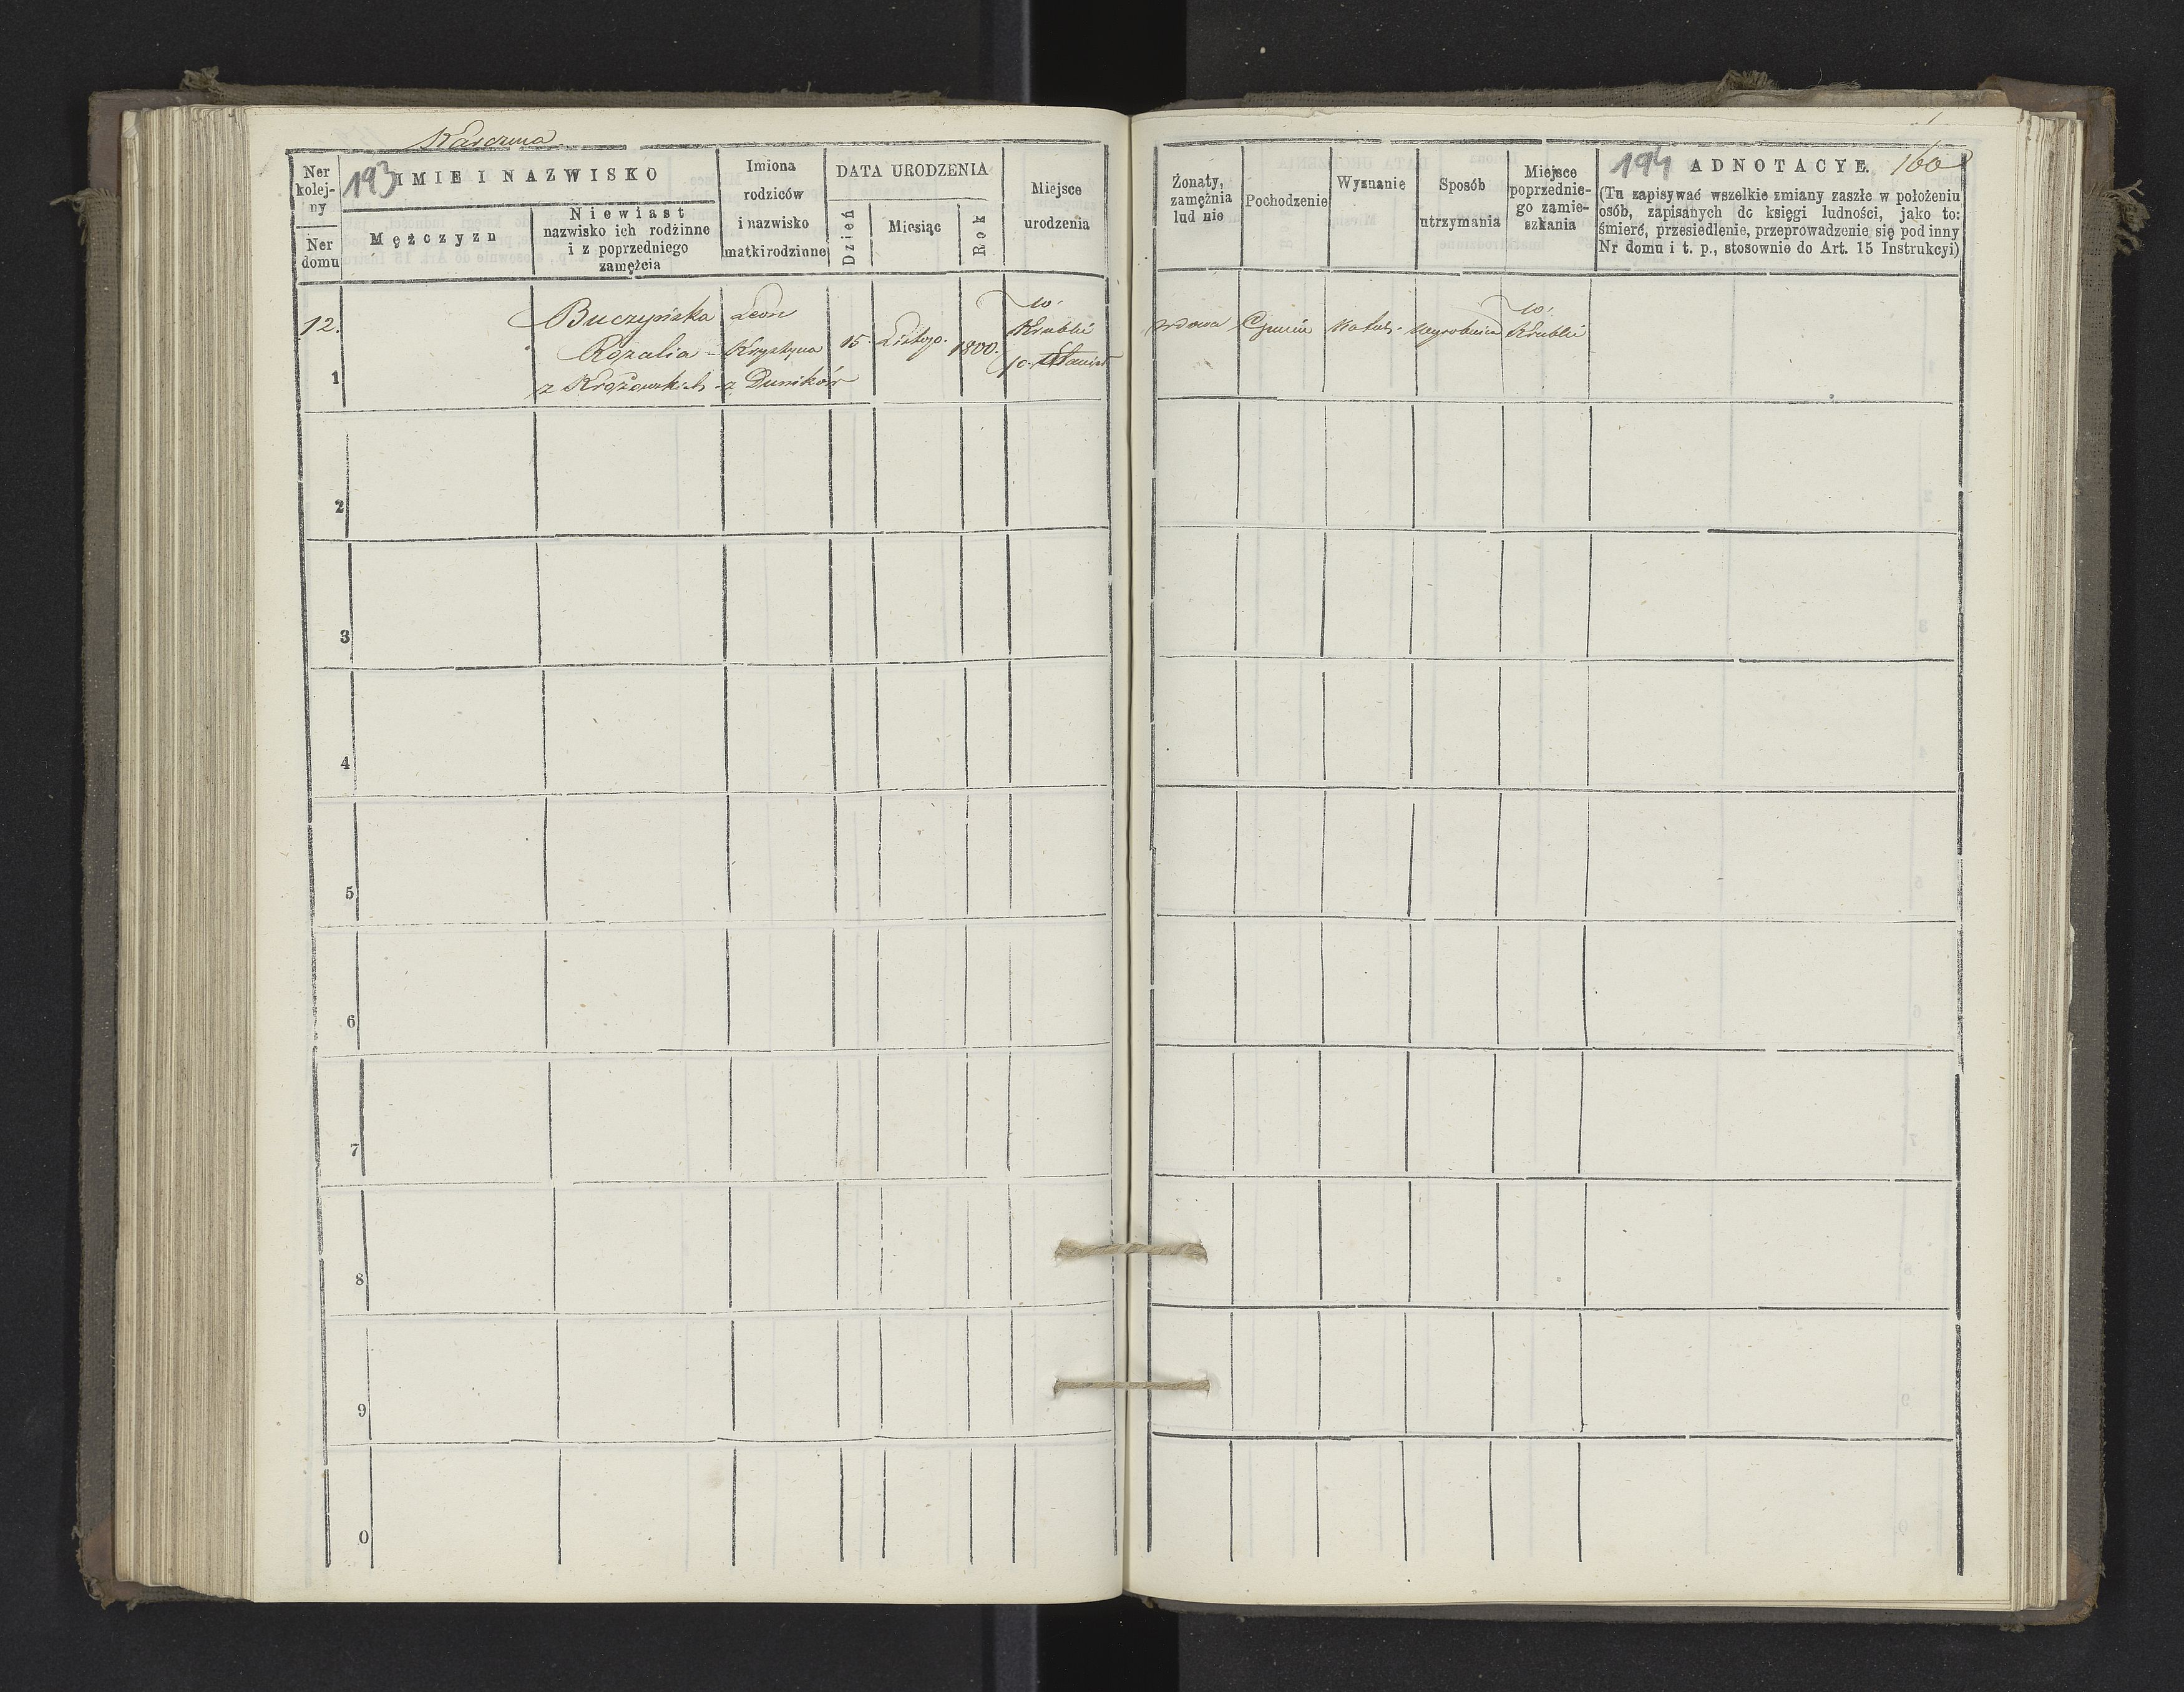 Karczma
193
Ner kolej-ny
Ner domu
IMIE I NAZWISKO
Mężczyzn
Niewiast
nazwisko ich rodzinne
i z poprzedniego
zamężcia
Imiona
rodziców
i nazwisko
matki rodzinne
DATA URODZENIA
Dzień
Miesiąc
Rok
Miejsce
urodzenia
12.
Buczyńska
Rozalia
z Krążewskich
Leon
Krystyna
z Duników
15.
Listop.
1800.
w.
Krubki
1
2
3
4
5
6
7
8
9
0
Żonaty,
zamężnia
lud nie
Pochodzenie
Wyznanie
Sposób
utrzymania
Miejsce
poprzednie-
go zamie-
szkania
194
ADNOTACYE.
160
(Tu zapisywać wszelkie zmiany zaszłe w położeniu
osób, zapisanych do księgi ludności, jako to:
śmierć, przesiedlenie, przeprowadzenie się pod inny
Nr domu i t. p., stosownie do Art. 15 Instrukcyi)
wdowa
Katol.
Wyrobnica
w.
Krubki